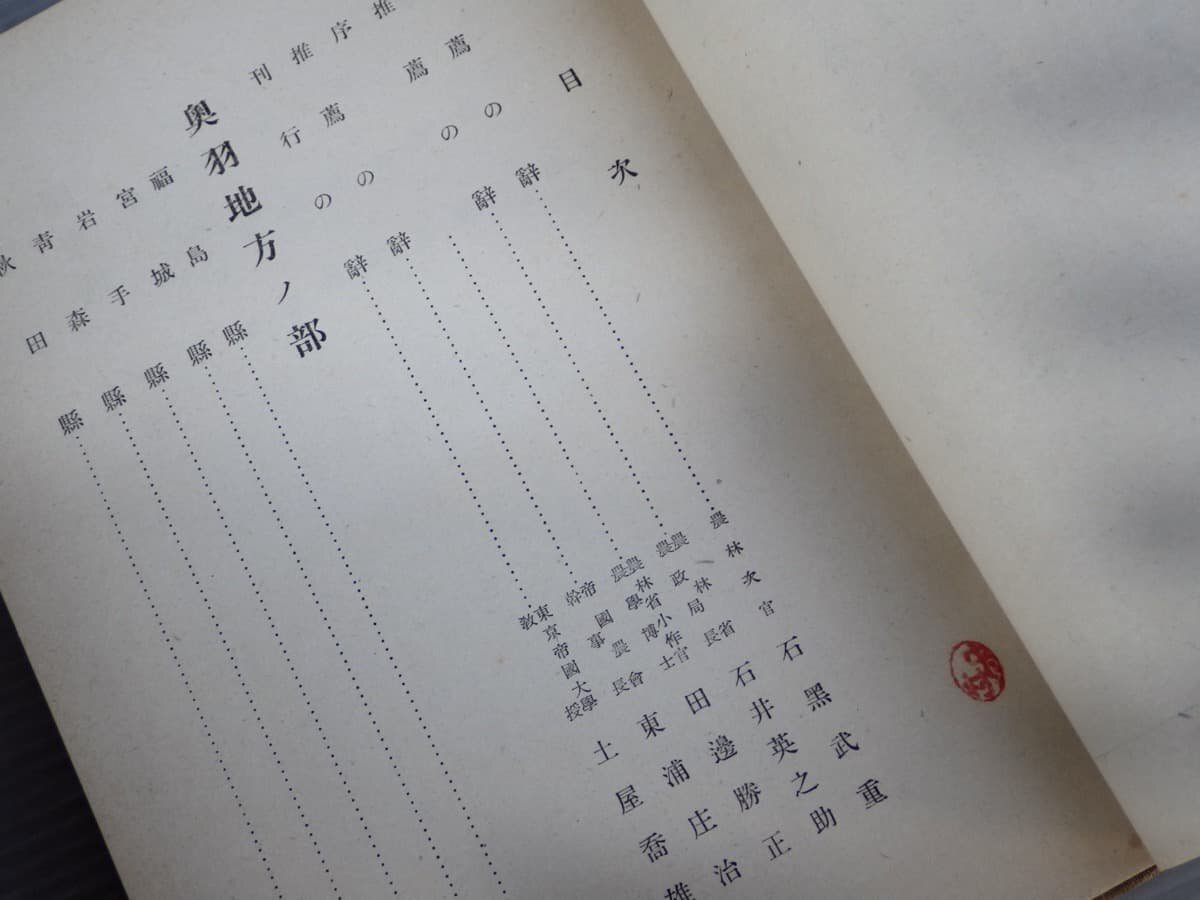 目次
薦の辭……農林次官 石黑武重
推薦の辭……農林省農政局長 石井英之助
序……農林省小作官農學博士 田邊勝正
推薦の辭……帝國農會幹事長 東浦庄治
刊行の辭……東京帝國大學教授 土屋喬雄
奥羽地方ノ部
福島縣……
宮城縣……
岩手縣……
青森縣……
秋田縣……